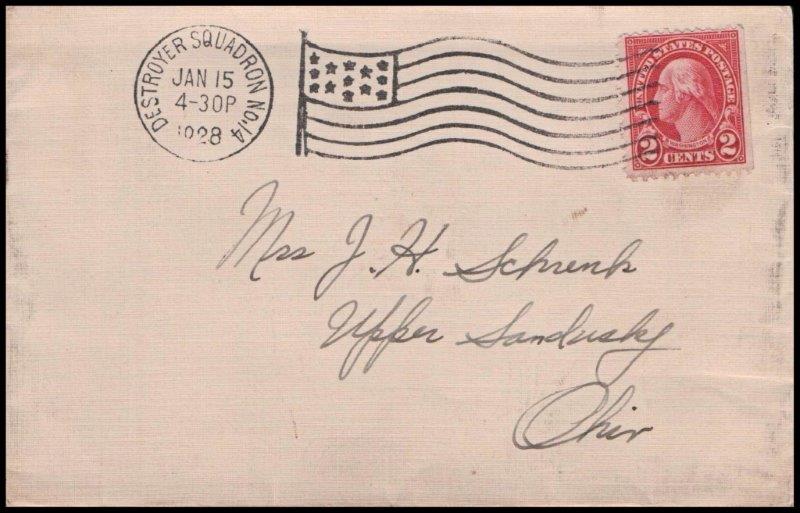 DESTROYER SQUADRON NO. 14
JAN 15
4-30P
1928
UNITED STATES POSTAGE
WASHINGTON
2 CENTS 2
Mrs J. H. Schrenk
Upper Sandusky
Ohio